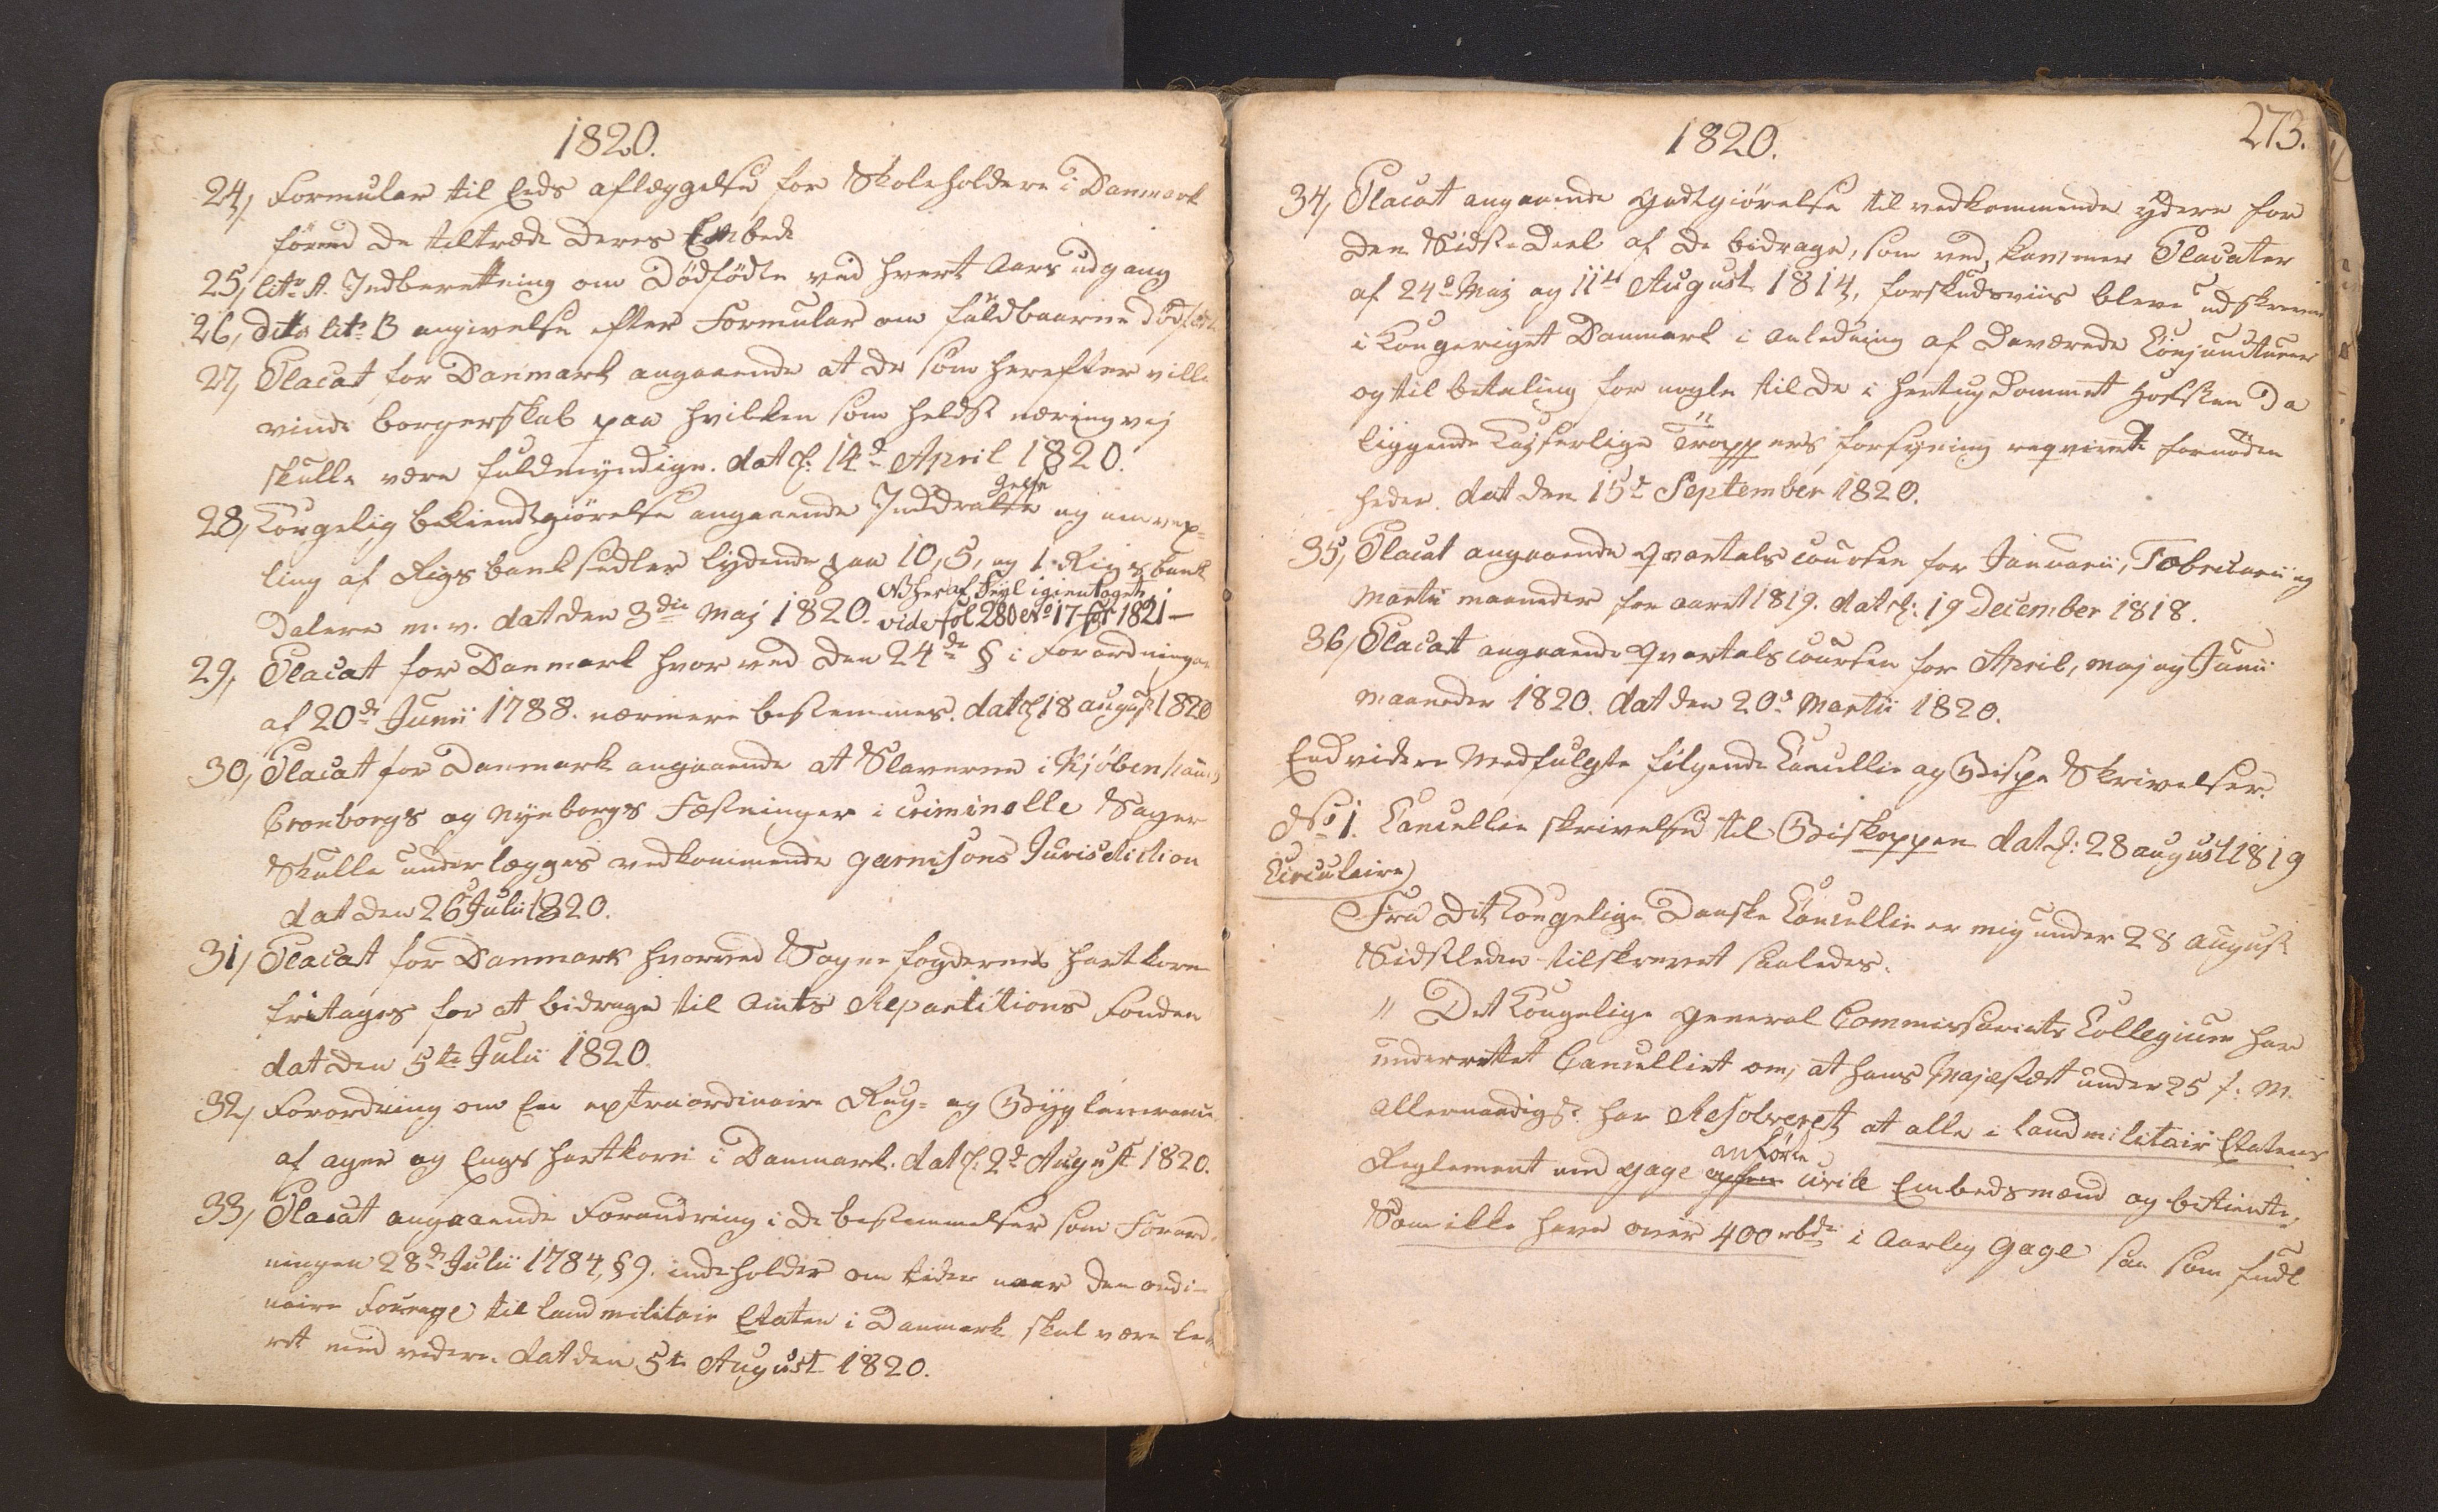 1820.
24, Formular til Eeds aflæggelse for Skoleholdere i Danmark
förend De tiltræde Deres Embede
25, litr A. Indberetning om Dödfödte ved hvert Aars udgang
26, dito litr B angivelse efter Formular om fuldbaarne dödfödte
27, Placat for Danmark angaaende at De som herefter ville
vinde borgerskab paa hvilken som heldst næringvej
skulle være fuldmyndige. dat d: 14de April 1820.
28, Kongelig bekiendtgiörelse angaaende Inddragelse og omvex-
ling af Rigsbanksedler lydende paa 10, 5, og 1. Rigsbank
NB heraf Feyl igientaget
Dalere m. v. dat den 3die Maj 1820. vide fol 280 No 17 for 1821 -
29, Placat for Danmark hvorved den 24de § i Forordningen
af 20de Junii 1788. nærmere bestemmes. dat d 18 august 1820
30, Placat for Danmark angaaende at Slaverne i Kjöbenhavns
Cronborgs og Nyeborgs Fæstninger i criminelle Sager
Skulle underlægges vedkommende garnisons Jurisdiction
dat den 26 Julii 1820.
31, Placat for Danmark hvorved Sognefogdernes hartkorn
fritages for at bidrage til Amts Repartitions Fonden
dat den 5te Julii 1820.
32, Forordning om En extraordinaire Rug- og Byg leverance
af ager og Engs hartkorn i Danmark. dat d: 2de August 1820.
33, Placat angaaende Forandring i De bestemmelser som Forord-
ningen 28de Julii 1784, § 9. indeholder om tiden naar Den ordi-
naire Fourage til land militair Etaten i Danmark skal være leve
ret med videre. dat den 5te August 1820.
1820.
273.
34, Placat angaaende godtgiörelse til vedkommende ydere for
Den Sidste Deel af De bidrage, som ved Kammer Placater
af 24de Maj og 11te August 1814, forskudsviis bleve udskrevne
i Kongeriget Danmark i Anledning af Daværende Conjuncturer
og til betaling for nogle til De i hertugdommet Holsten Da
liggende Keyserlige Troppers forsyning reqvirerede fornöden
heder. dat den 15de September 1820.
35, Placat angaaende Qvartals coursen for Januarii, Februarii og
Martii maaneder for aaret 1819. dat d: 19 December 1818.
36, Placat angaaende Qvartals coursen for April, maj og Junii
maaneder 1820. dat den 20de Martii 1820.
Endvidere Medfulgte fölgende Cancellie og Bispe Skrivelser.
No 1. Cancellie skrivelse til Biskoppen dat d: 28 august 1819
Circulaire
Fra Det Kongelige Danske Cancellie er mig under 28 august
Sidstleden tilskrevet saaledes.
" Det Kongelige General Commissariats Collegium har
underrettet Cancelliet om, at hans Majestæt under 25 f: M.
Allernaadigst har Resolveret, at alle i land militair Etatens
Reglement med gage anförte civile Embedsmænd og betiente,
Som ikke have over 400 rbdr i Aarlig Gage saa som fudt